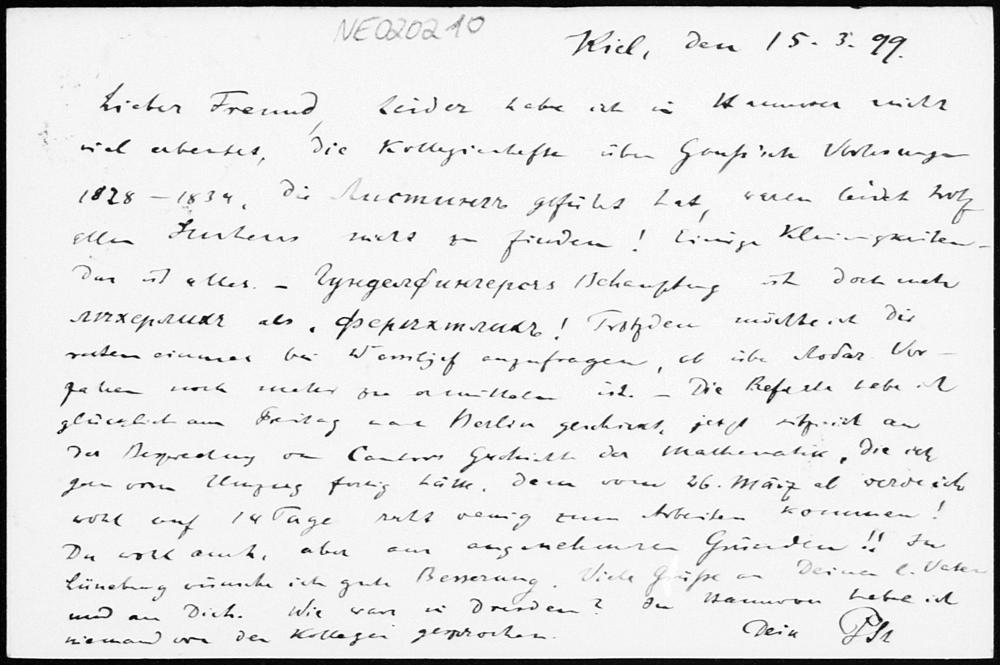 NE020210
Kiel, den 15. 3. 99.
Lieber Freund, Leider habe ich in Hannover nicht
viel erbeutet, die Kollegienhefte über Gaußische Vorlesungen
1828 – 1834, die Листингъ geführt hat, waren leider trotz
allen Suchens nicht zu finden! Einige Kleinigkeiten –
das ist alles. – Гунделфингерсъ Behauptung ist doch mehr
als ! Trotzdem möchte ich Dir
raten einmal bei Wassiljef anzufragen, ob über Vor-
haben noch mehr zu ermitteln ist. – Die Referate habe ich
glücklich am Freitag nach Berlin geschickt, jetzt sitze ich an
der Besprechung von Cantors Geschichte der Mathematik, die ich
gern vorm Umzug fertig hätte, denn vom 26. März ab werde ich
wohl auf 14 Tage recht wenig zum Arbeiten kommen!
Du wohl auch, aber aus angenehmeren Gründen!! In
Lüneburg wünsche ich gute Besserung. Viele Grüße an Deinen l. Vater
und an Dich. Wie war's in Dresden? In Hannover habe ich
niemand von den Kollegen gesprochen. Dein